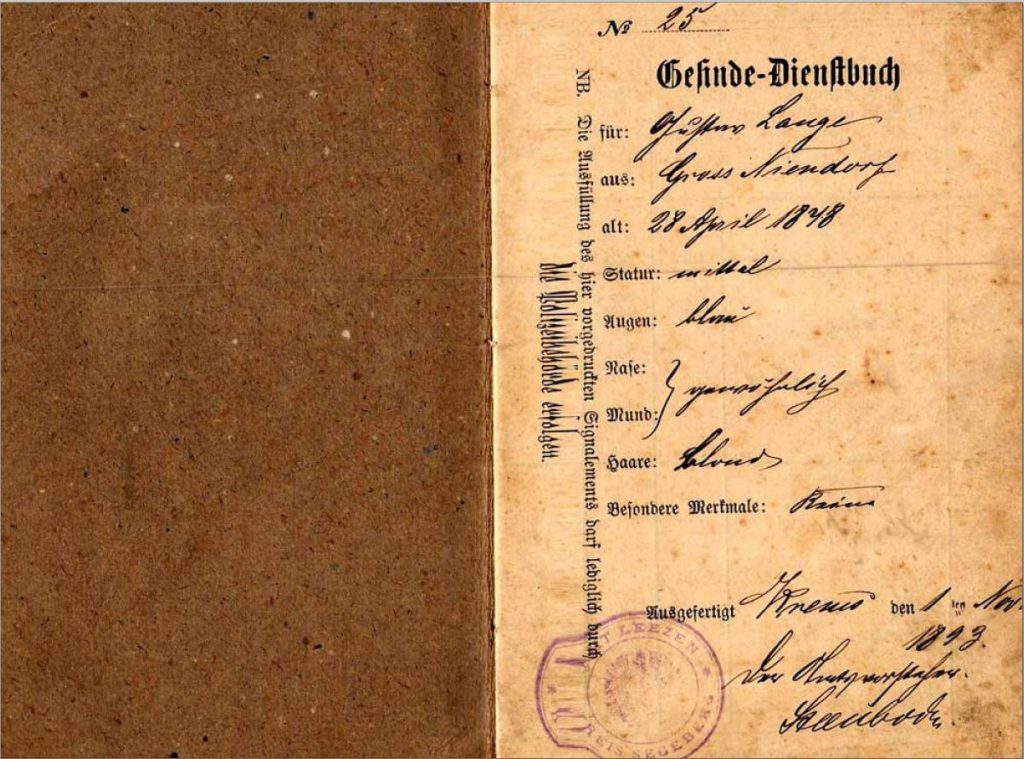 № 25
Gesinde-Dienstbuch
für: Gustav Lange
aus: Gross Niendorf
alt: 28 April 1878
Statur: mittel
Augen: blau
Nase:
Mund: } gewöhnlich
Haare: blond
Besondere Merkmale: Keine
Ausgefertigt Krems den 1 ten Nov.
1893.
Der Amtsvorsteher.
NB. Die Ausfüllung des hier vorgedruckten Signalements darf lediglich durch
die Polizeibehörde erfolgen.
AMT LEEZEN
KREIS SEGEBERG